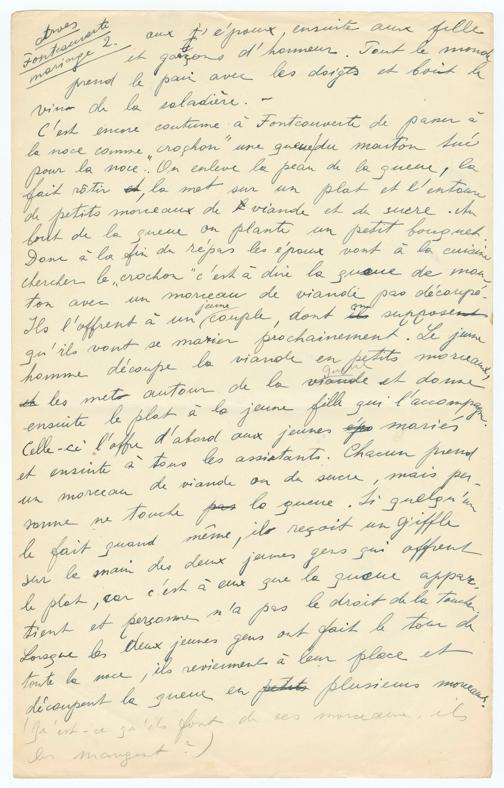 Arves
Fontcouverte
mariage 2.
aux époux, ensuite aux fille
et garçons d'honneur. Tout le monde
prend le pain avec les doigts et boit le
vin de la saladière. –
C'est encore coutume à Fontcouverte de passer à
la noce comme "crochon" une queue du mouton tué
pour la noce. On enlève la peau de la queue, la
fait rôtir et, la met sur un plat et l'entoure
de petits morceaux de viande et de sucre. Au
bout de la queue on plante un petit bouquet.
Donc à la fin du répas les époux vont à la cuisine
chercher le "crochon" c'est à dire la queue de mou
ton avec un morceau de viande pas découpé.
Ils l'offrent à un jeune couple dont on suppose
qu'ils vont se marier prochainement. Le jeune
homme découpe la viande en petits morceaux,
et les mets autour de la viande queue et donne
ensuite le plat à la jeune fille qui l'accompagne.
Celle-ci l'offre d'abord aux jeunes épo mariés
et ensuite à tous les assistants. Chacun prend
un morceau de viande ou de sucre, mais per-
sonne ne touche pas la queue. Si quelqu'un
le fait quand même, il reçoit un giffle
sur la main des deux jeunes gens qui offrent
le plat, car c'est à eux que la queue appar,
tient et personne n'a pas le droit de la toucher.
Lorsque les deux jeunes gens ont fait le tour de
toute la noce, ils reviennent à leur place et
découpent la queue en petits plusieurs morceaux.
(Qu'est-ce qu'ils font de ces morceaux, ils
les mangent ?)